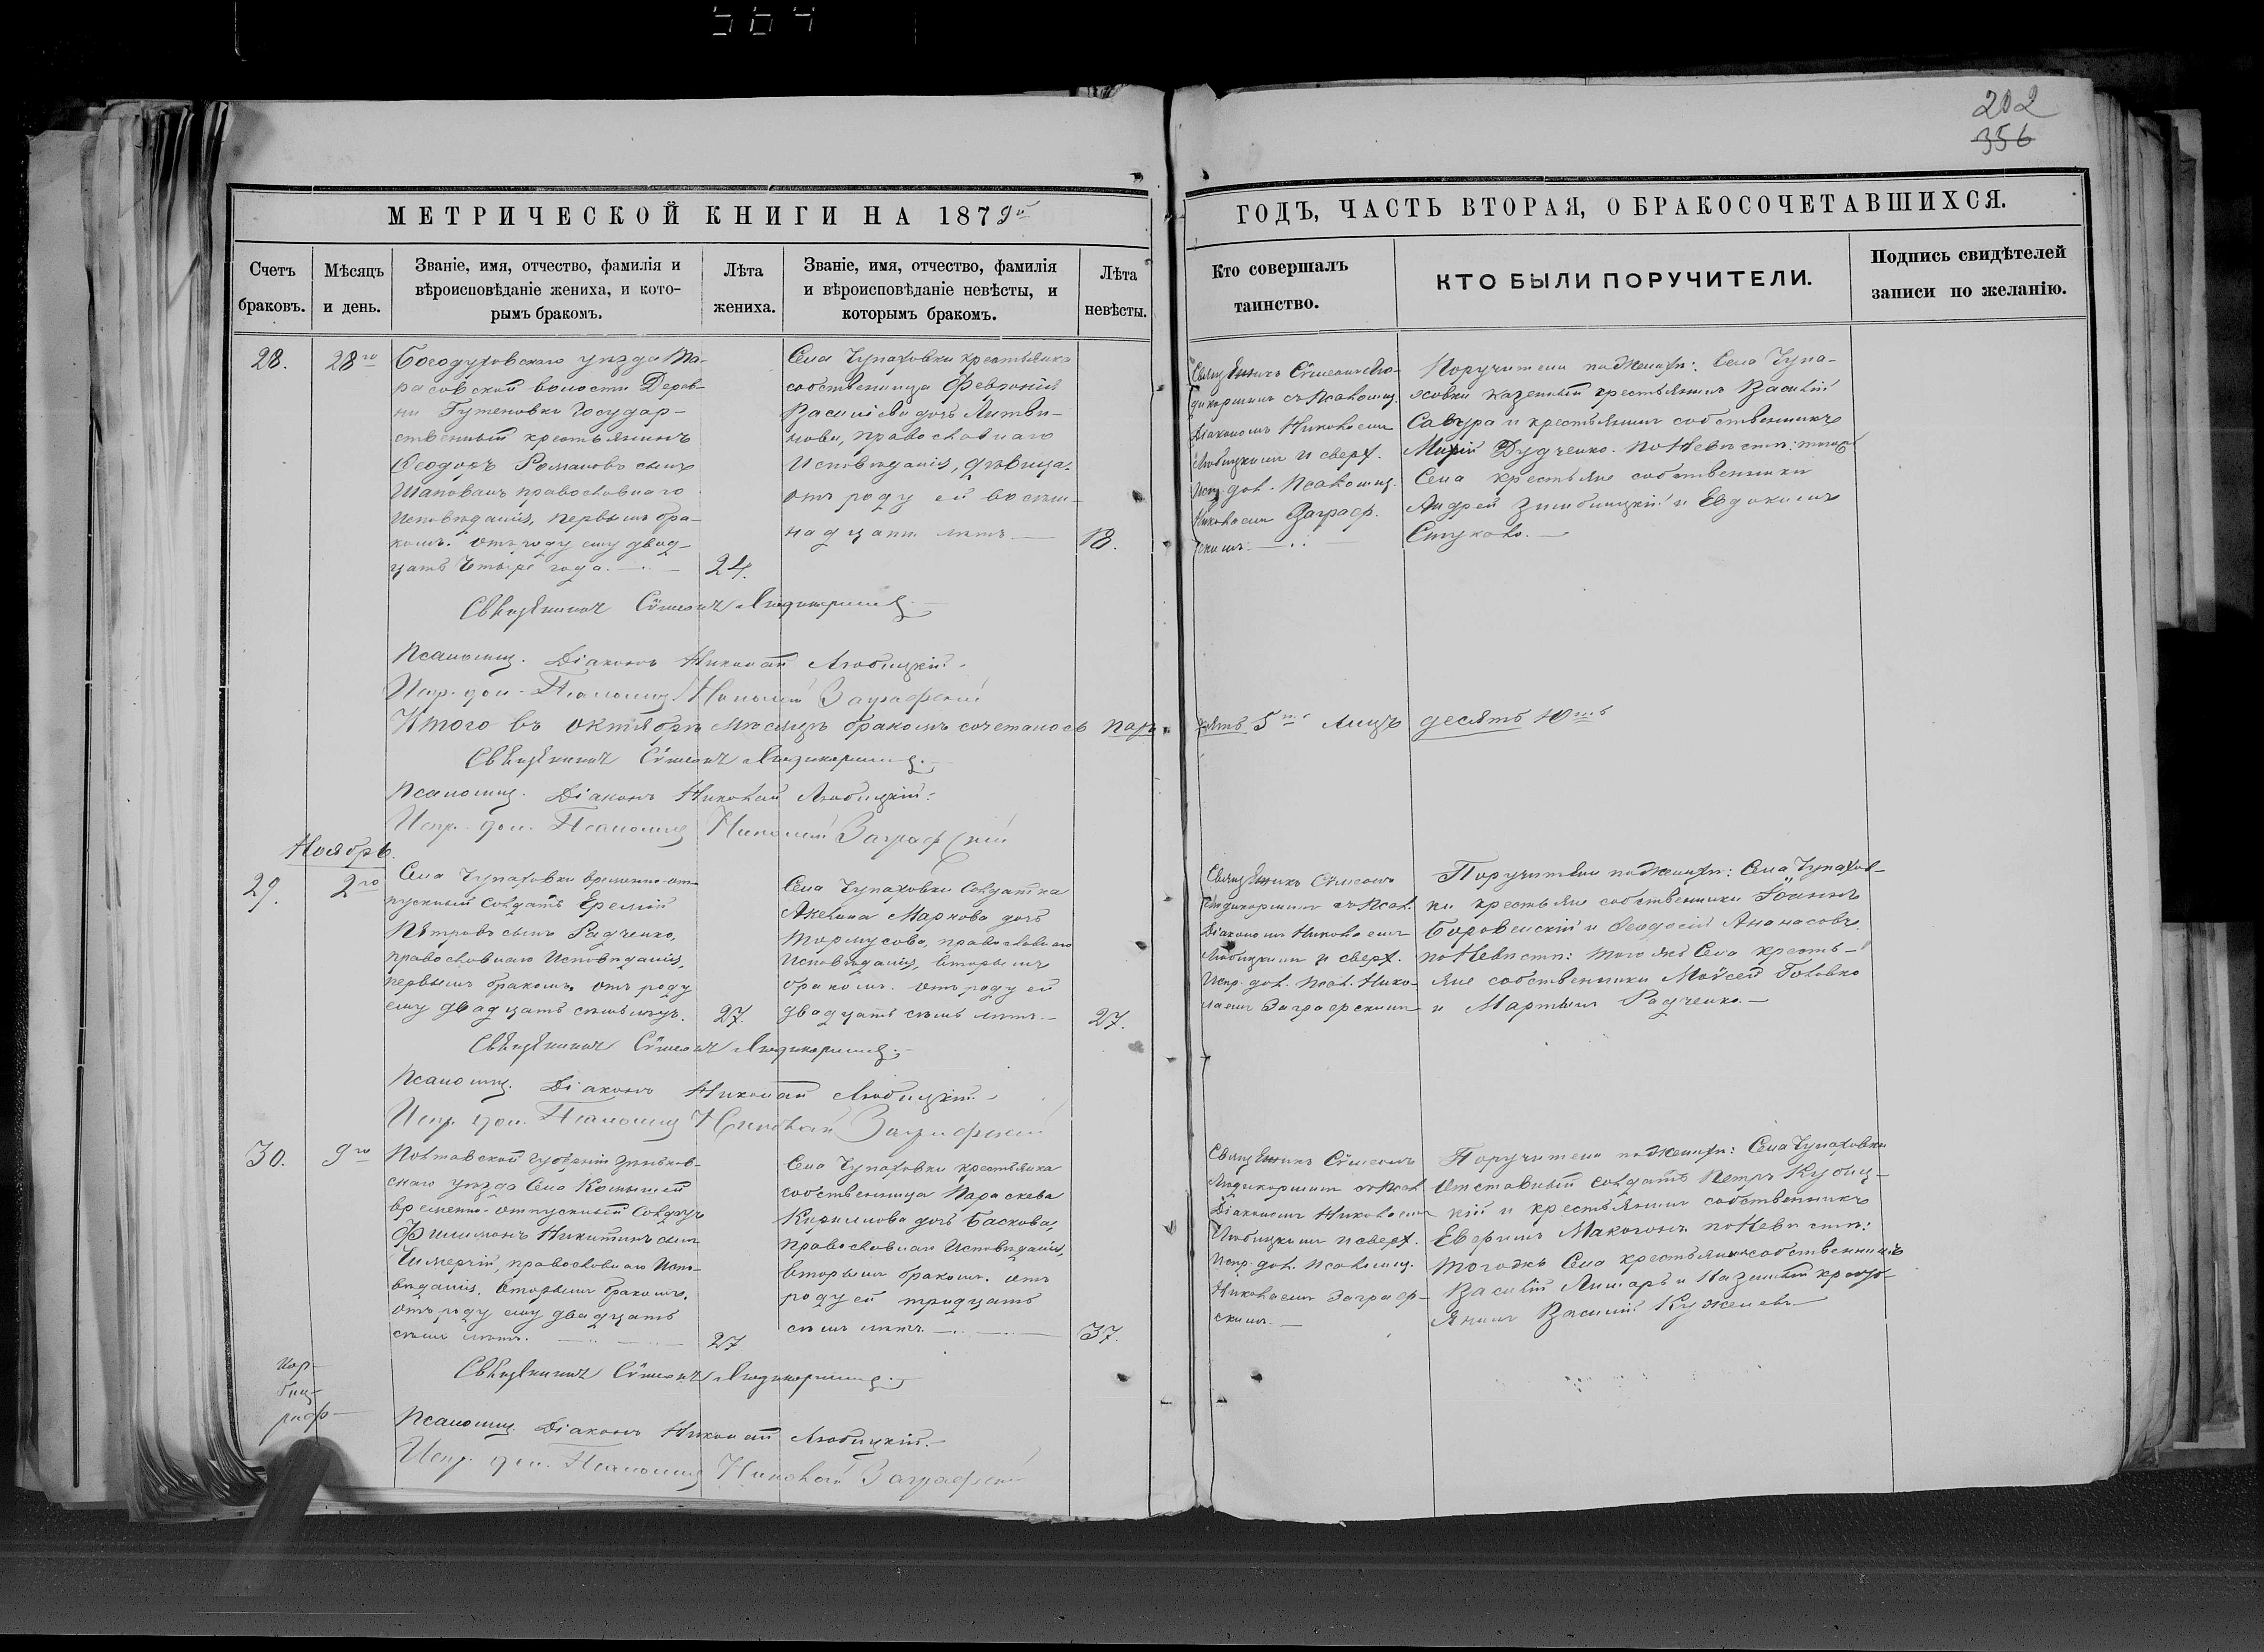 202
356
МЕТРИЧЕСКОЙ КНИГИ НА 1879й
ГОДЪ, ЧАСТЬ ВТОРАЯ, О БРАКОСОЧЕТАВШИХСЯ.
Счетъ браковъ.
Мѣсяцъ и день.
Званіе, имя, отчество, фамилія и
вѣроисповѣданіе жениха, и кото-
рымъ бракомъ.
Лѣта жениха.
Званіе, имя, отчество, фамилія
и вѣроисповѣданіе невѣсты, и
которымъ бракомъ.
Лѣта невѣсты.
Кто совершалъ
таинство.
КТО БЫЛИ ПОРУЧИТЕЛИ.
Подпись свидѣтелей
записи по желанію.
28.
28го
Богодуховскаго уѣзда
расовской волости Дерев-
ни Гутеновки Государ-
ственный крестьянинъ
Ѳеодоръ Романовъ сынъ
Шаповалъ православнаго
Исповѣданія, первымъ бра-
комъ. Отъ роду ему двад-
цать четыре года.
24.
Села Чупаховки крестьянка
собственница Феврония
Василіева дочь Литви-
нова, православнаго
Исповѣданія, дѣвица.
Отъ роду ей восем-
надцать лѣтъ
18.
Священникъ Сѵмеонъ Лю-
дикорминъ съ Псаломщ.
Діакономъ Николаемъ
Любицкимъ и сверх.
Испр. дол. Псаломщ.
Николаемъ Заграф.
скимъ
Поручители по Женихѣ: Села Чупа-
ховки казенный крестьянинъ Василій
Савура и крестьянинъ собственникъ
Дудченко. По Невѣстѣ: того
Села крестьяне собственники
Андрей и Евдокимъ
Стуковъ.
Священникъ Сѵмеонъ Людикорминъ
Псаломщ. Діаконъ Николай Любицкій.
Испр. дол. Псаломщ. Николай Заграфскій
Итого въ Октябрѣ мѣсяцѣ бракомъ сочеталось паръ
пять 5ть Лицъ десять 10ть
Священникъ Сѵмеонъ Людикорминъ
Псаломщ. Діаконъ Николай Любицкій.
Испр. дол. Псаломщ. Николай Заграфскій
Ноябрь.
29.
2го
Села Чупаховки временно-от-
пускный Солдатъ Еремій
Петровъ сынъ Радченко,
православнаго Исповѣданія,
первымъ бракомъ, отъ роду
ему двадцать семь лѣтъ.
27.
Села Чупаховки Солдатка
Акелина Маркова дочь
Тормусова, православнаго
Исповѣданія, вторымъ
бракомъ. Отъ роду ей
двадцать семь лѣтъ.
27.
Священникъ Сѵмеонъ
Людикорминъ съ Псал.
Діакономъ Николаемъ
Любицкимъ и сверх.
Испр. дол. Псал. Нико-
лаемъ Заграфскимъ
Поручители по Женихѣ: Села Чупахов-
ки крестьяне собственники Іоаннъ
Боровенскій и Ѳеодосій Анонасовъ
по Невѣстѣ: того жъ Села кресть-
яне собственники Моѵсей Головко
и Мартынъ Радченко.
Священникъ Сѵмеонъ Людикорминъ
Псаломщ. Діаконъ Николай Любицкій.
Испр. дол. Псаломщ. Николай Заграфскій
30.
9го
Полтавской Губерніи Зѣньков-
скаго уѣзда Села Комышей
временно-отпускный Солдатъ
Филимонъ Никитинъ сынъ
православнаго Испо-
вѣданія, вторымъ бракомъ.
Отъ роду ему двадцать
семь лѣтъ.
27
Села Чупаховки крестьянка
собственница Параскева
Кириллова дочь Баскова,
Православнаго Исповѣданія,
вторымъ бракомъ. отъ
роду ей тридцать
семь лѣтъ.
37.
Священникъ Сѵмеонъ
Людикорминъ съ Псал
Діакономъ Николаемъ
Любицкимъ и сверх.
Испр. дол. Псаломщ.
Николаемъ Заграф-
скимъ.
Поручители по Женихѣ: Села Чупаховки
Отставный Солдатъ Петръ Кубиц-
кій и крестьянинъ собственникъ
Макогонъ. по Невѣстѣ:
того жъ Села крестьянинъ собственникъ
Василій Лимаръ и Казенный кресть-
янинъ Василій Кужелевъ
Священникъ Сѵмеонъ Людикорминъ
Псаломщ. Діаконъ Николай Любицкій.
Испр. дол. Псаломщ. Николай Заграфскій